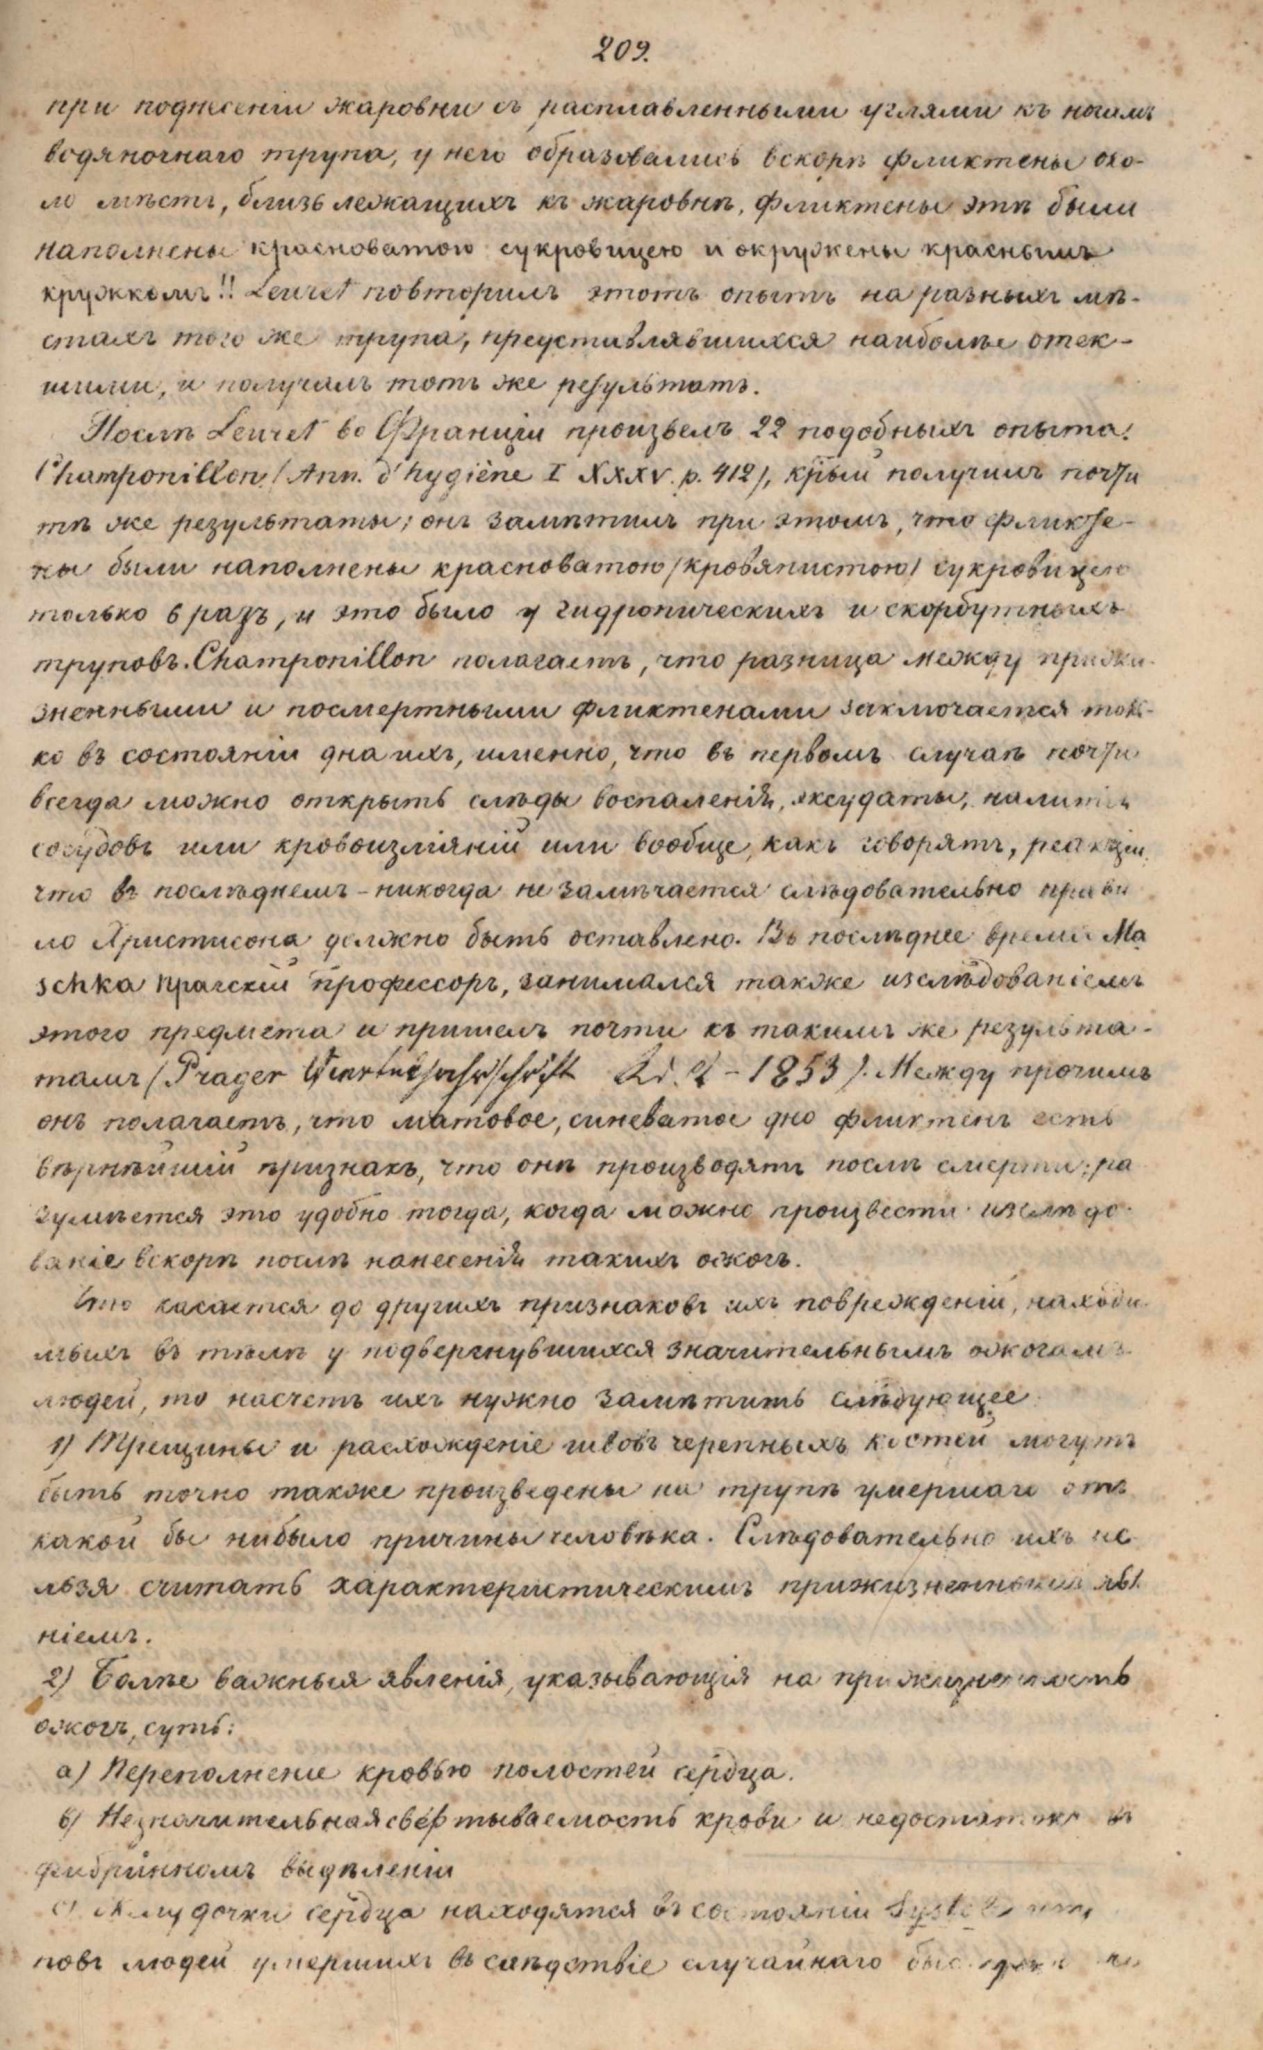 209.
при поднесеніи жаровни съ расплавленными углями къ ногамъ
водяночнаго трупа, у него образовались вскорѣ фликтены око-
ло мѣстъ, близь лежащихъ къ жаровнѣ, фликтены этѣ были
наполнены красноватою сукровицею и окружены краснымъ
кружкомъ!! Leuret повторилъ этотъ опытъ на разныхъ мѣ-
стахъ того же трупа, представлявшихся наиболѣе отек-
шими, и получалъ тотъ же результатъ.
Послѣ Leuret во Франціи произвелъ 22 подобныхъ опыта.
Champonillon (Ann. d'hygiène I XXXV. p. 412), кр̃ый получилъ почти
тѣ же результаты; онъ замѣтилъ при этомъ, что фликте-
ны были наполнены красноватою (кровянистою) сукровицею
только 6 разъ, и это было у гидропическихъ и скорбутныхъ
труповъ. Champonillon полагаетъ, что разница между прижи-
зненными и посмертными фликтенами заключается толь-
ко въ состояніи дна ихъ, именно, что въ первомъ случаѣ почти
всегда можно открыть слѣды воспаленія, эксудаты, налитія
сосудовъ или кровоизліяній или вообще, какъ говорятъ, реакціи,
что въ послѣднемъ - никогда не замѣчается слѣдовательно прави
ло Христисона должно быть оставлено. Въ послѣднее время Ma
schka прагскій профессоръ, занимался также изслѣдованіемъ
этого предмета и пришелъ почти къ такимъ же результа-
тамъ (Prager Vierteljahrschrift - 1853). Между прочимъ
онъ полагаетъ, что матовое, синеватое дно фликтенъ есть
вѣрнѣйшій признакъ, что онѣ производятъ послѣ смерти; ра
зумѣется это удобно тогда, когда можно произвести изслѣдо-
ваніе вскорѣ послѣ нанесенія такихъ ожогъ.
Что касается до другихъ признаковъ ихъ поврежденій, находи-
мыхъ въ тѣлѣ у подвергнувшихся значительнымъ ожогамъ
людей, то насчетъ ихъ нужно замѣтить слѣдующее
1) Трещины и расхожденіе швовъ черепныхъ костей могутъ
быть точно также произведены на трупѣ умершаго отъ
какой бы нибыло причины человѣка. Слѣдовательно ихъ не
льзя считать характеристическимъ прижизненнымъ явл
ніемъ.
2) Болѣе важныя явленія, указывающія на прижизненность
ожогъ, суть:
a) Переполненіе кровью полостей сердца.
b) Незначительная свертываемость крови и недостатокъ въ
фибринномъ выдѣленіи
c) Желудочки сердца находятся въ состояніи
повъ людей умершихъ въ слѣдствіе случайнаго